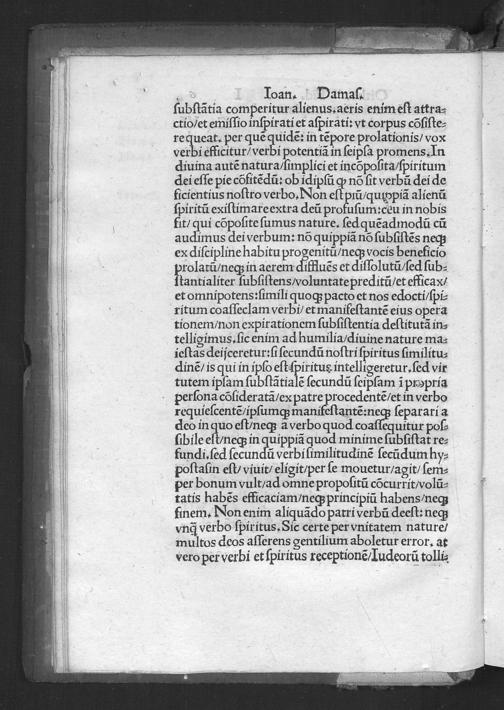 Ioan. Damaſ.
ſubſtãtia comperitur alienus. aeris enim eſt attra⸗
ctio/et emiſſio inſpirati et aſpirati: vt corpus cõſiſte⸗
re queat. per quẽ quidẽ: in tẽpore prolationis/vox
verbi efficitur/verbi potentiã in ſeipſa promens. In
diuina autẽ natura/ſimplici et incõpoſita/ſpiritum
dei eſſe pie cõfitẽdũ: ob idipſũ ꝙ nõ ſit verbũ dei de
ficientius noſtro verbo. Non eſt piũ/quippiã alienũ
ſpiritũ exiſtimare extra deũ profuſum: ceu in nobis
fit/qui cõpoſite ſumus nature. ſed quẽadmodũ cũ
audimus dei verbum: nõ quippiã nõ ſubſiſtẽs neqꝫ
ex diſcipline habitu progenitũ/neqꝫ vocis beneficio
prolatũ/neqꝫ in aerem diffluẽs et diſſolutũ/ſed ſub⸗
ſtantialiter ſubſiſtens/voluntate preditũ/et efficax/
et omnipotens: ſimili quoqꝫ pacto et nos edocti/ſpi⸗
ritum coaſſeclam verbi/et manifeſtantẽ eius opera
tionem/non expirationem ſubſiſtentia deſtitutã in⸗
telligimus. ſic enim ad humilia/diuine nature ma⸗
ieſtas deijceretur: ſi ſecundũ noſtri ſpiritus ſimilitu⸗
dinẽ/is qui in ipſo eſt ſpiritus intelligeretur. ſed vir
tutem ipſam ſubſtãtialẽ ſecundũ ſeipſam ĩ propria
perſona cõſideratã/ex patre procedentẽ/et in verbo
requieſcentẽ/ipſumqꝫ manifeſtantẽ: neqꝫ ſeparari a
deo in quo eſt/neqꝫ a verbo quod coaſſequitur poſ⸗
ſibile eſt/neqꝫ in quippiã quod minime ſubſiſtat re⸗
fundi. ſed ſecundũ verbi ſimilitudinẽ ſecũdum hy⸗
poſtaſin eſt/viuit/eligit/per ſe mouetur/agit/ſem⸗
per bonum vult/ad omne propoſitũ cõcurrit/volũ⸗
tatis habẽs efficaciam/neqꝫ principiũ habens/neqꝫ
finem. Non enim aliquãdo patri verbũ deeſt: neqꝫ
vnꝙ̃ verbo ſpiritus. Sic certe per vnitatem nature/
multos deos aſſerens gentilium aboletur error. at
vero per verbi et ſpiritus receptionẽ/Iudeorũ tolli⸗